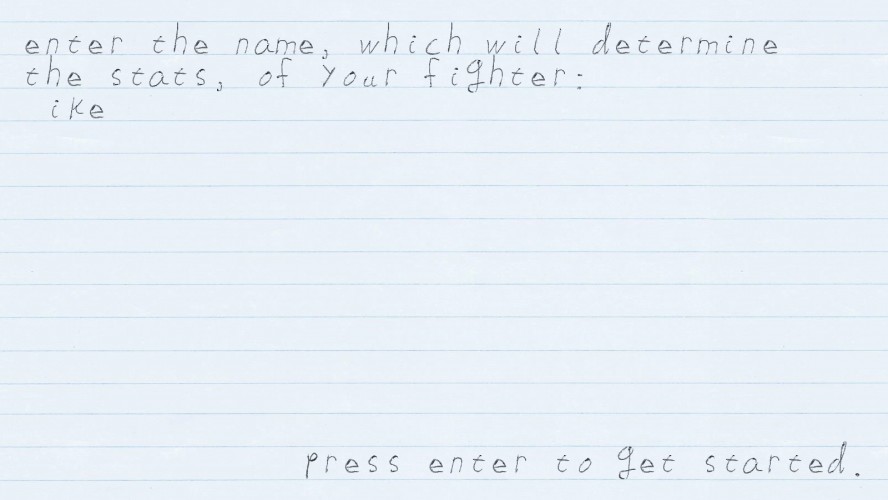 enter the name, which will determine
the stats, of your fighter:
ike
press enter to get started.